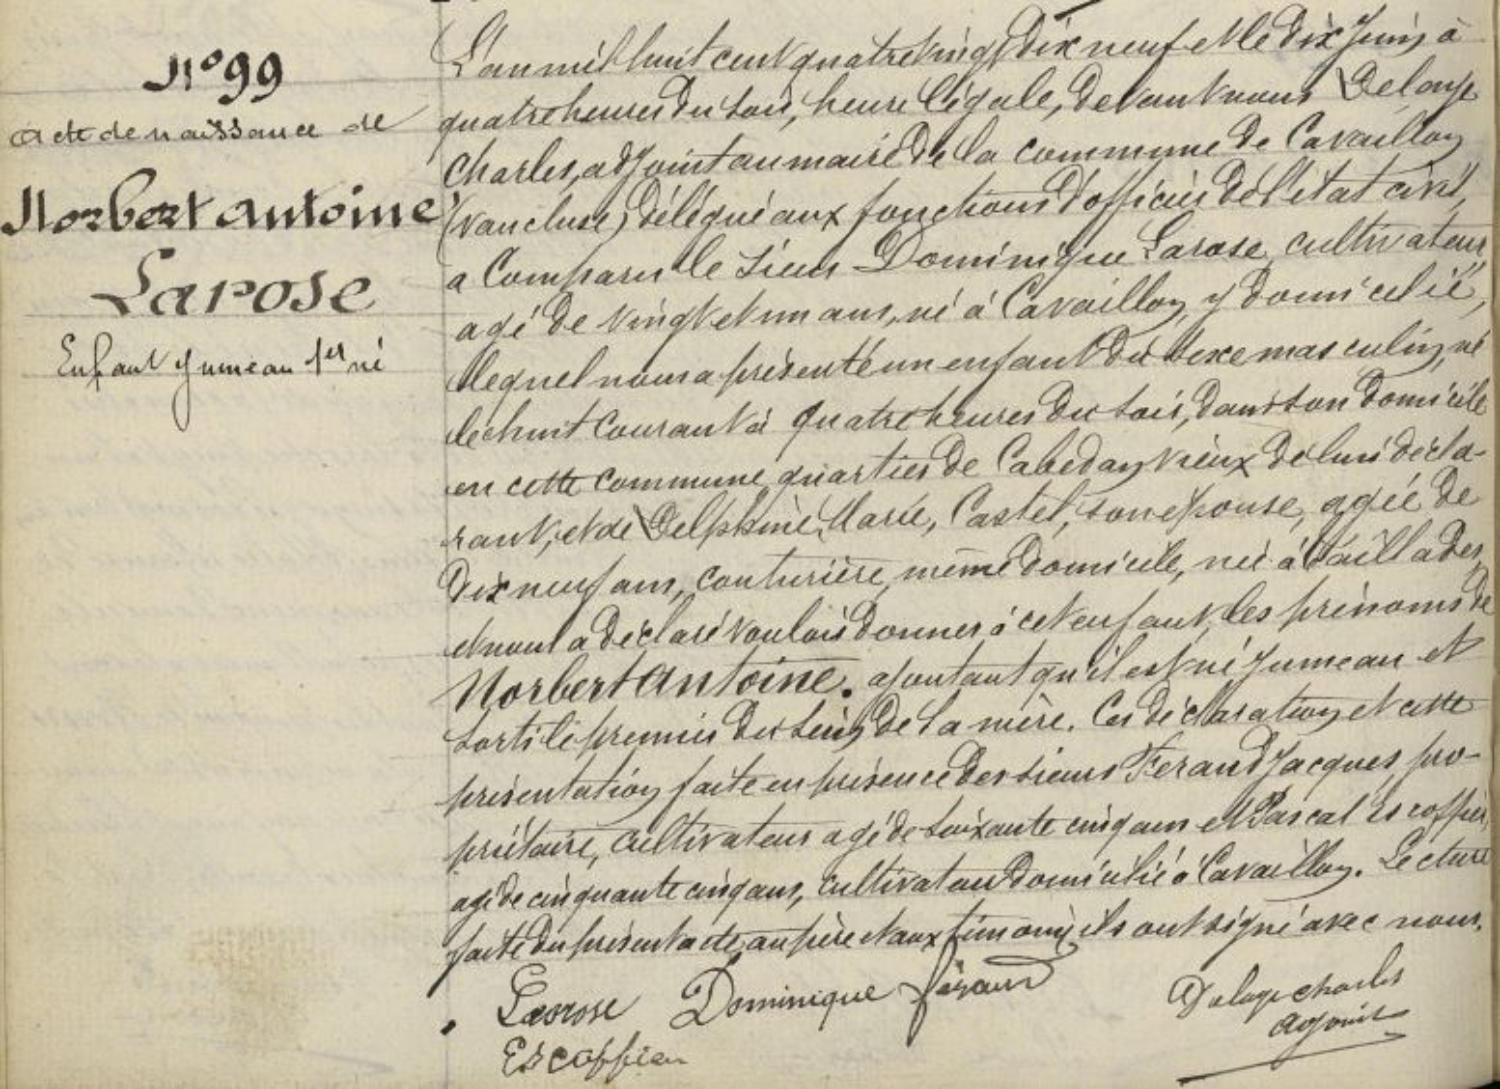 N° 99
Acte de naissance de
Norbert Antoine
Larose
Enfant Jumeau 1er né
L'an mil huit cent quatre vingt dix neuf et le dix Juin à
quatre heures du soir, heure légale, devant nous Deloye
Charles, adjoint au maire de la commune de Cavaillon
(Vaucluse) délégué aux fonctions d'officier de l'état civil,
a Comparu le sieur Dominique Larose, cultivateur,
agé de vingt et un ans, né à Cavaillon, y domicilié,
lequel nous a présenté un enfant du sexe masculin, né
le huit Courant à quatre heures du soir, dans son domicile
en cette commune quartier de Cabedan Vieux de lui décla-
rant, et de Delphine, Marie, Castel, son épouse, agée de
dix neuf ans, couturière, même domicile, née à Taillades,
et nous a déclaré vouloir donner à cet enfant, les prénoms de
Norbert Antoine. ajoutant qu'il est né jumeau et
sorti le premier du sein de la mère. Ces déclaration et cette
présentation faite en présence des sieurs Ferand Jacques, pro-
priétaire, cultivateur agé de soixante cinq ans et Pascal Escoffier,
agé de cinquante cinq ans, cultivateur domicilié à Cavaillon. Lecture
faite du présent acte, au père et aux témoins ils ont signé avec nous.
Larose Dominique féraud
Deloye Charles
adjoint
Escoffier